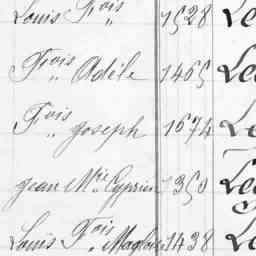 Louis Fois „ 1528 Le
Fois „ Adèle 1465 Le
Fois „ Joseph 1674 Le
Jean Mie Cyprien 1350 Le
Louis Fois „ Magloire 1438 Le